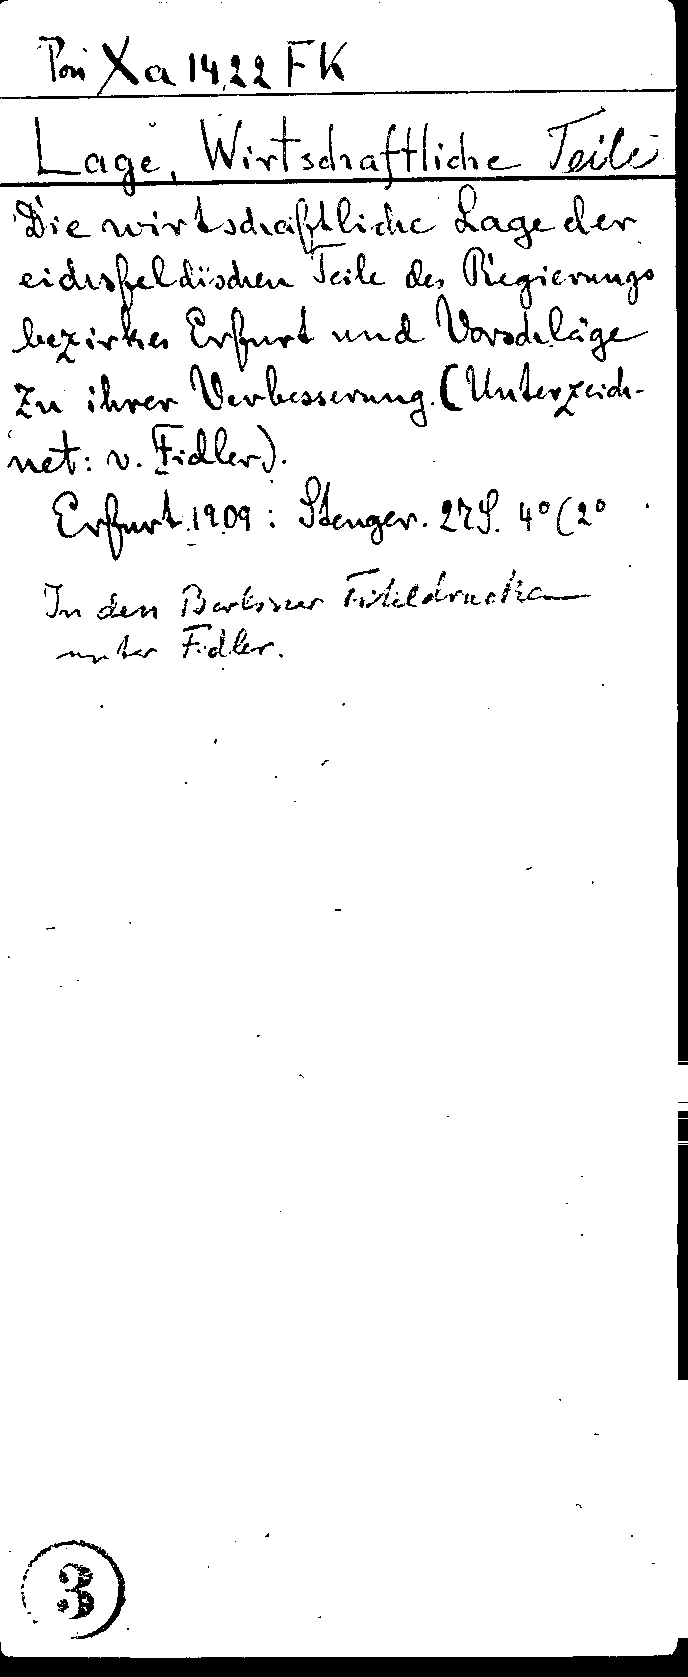 Pon Xa 1422 FK
Lage, Wirtschaftliche Teile
Die wirtschaftliche Lage der
eichsfeldischen Teile des Regierungs
bezirkes Erfurt und Vorschläge
zu ihrer Verbesserung. (Unterzeich-
net: v. Fidler).
Erfurt 1909: Stenger. 27 S. 4° (2°
In den Berliner Titeldrucken
unter Fidler.
3